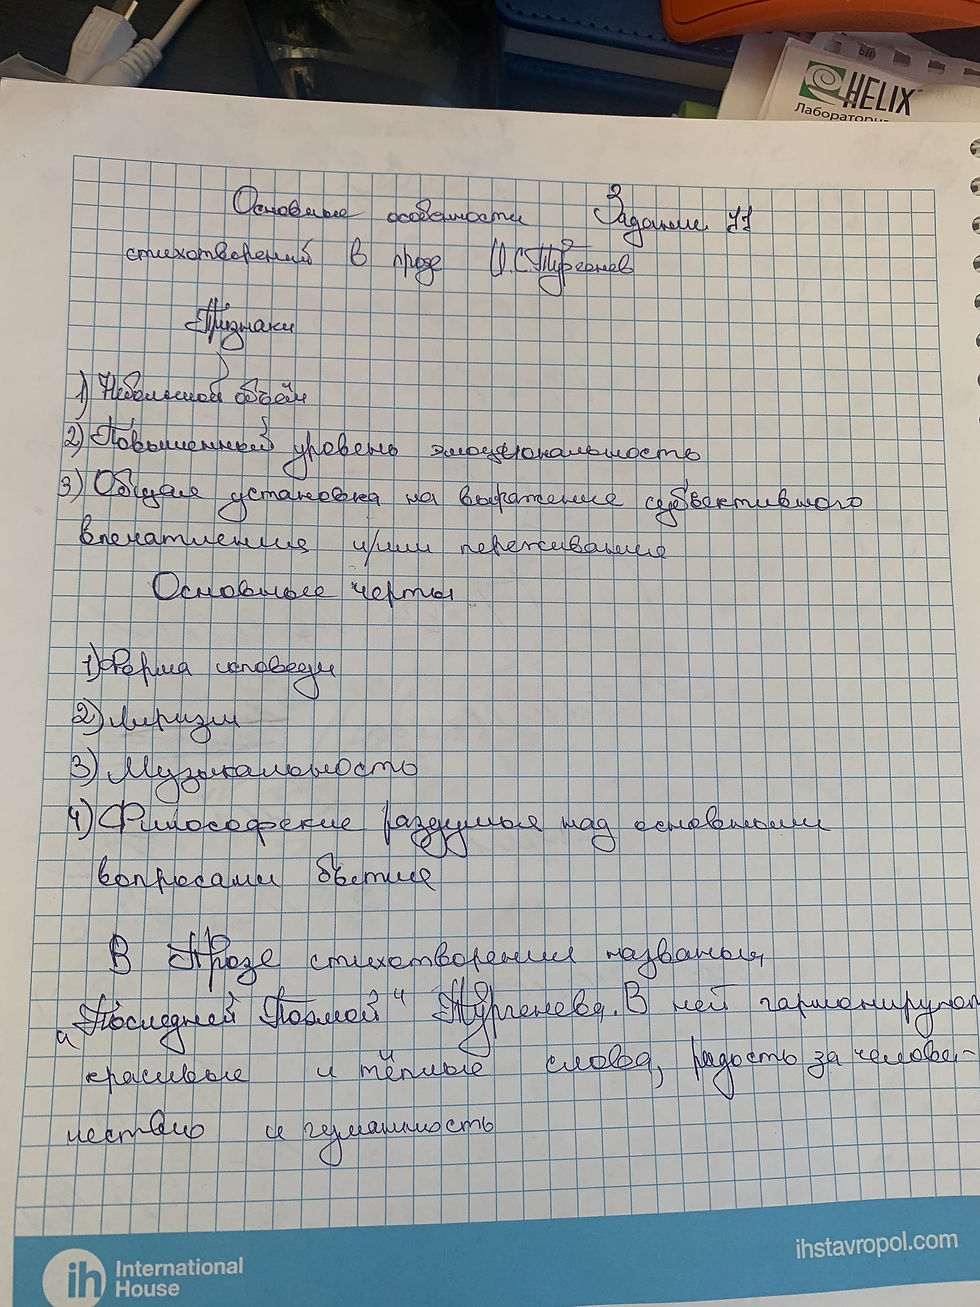 HELIX
Лаборатория
Основные особенности Задание 11
стихотворений в прозе И.С.Тургенев
Признаки
1) Небольшой объём
2) Повышенный уровень эмоциональность
3) Общая установка на выражение субъективного
впечатления и/или переживание
Основные черты
1) Форма исповеди
2) Лиризм
3) Музыкальность
4) Философские раздумья над основными
вопросами бытие
В Прозе стихотворения названы,
"Последней Поэмой" Тургенева. В ней гармонируют
а
красивые и тёплые слова, радость за челове-
чество и гуманность
ih International
House
ihstavropol.com